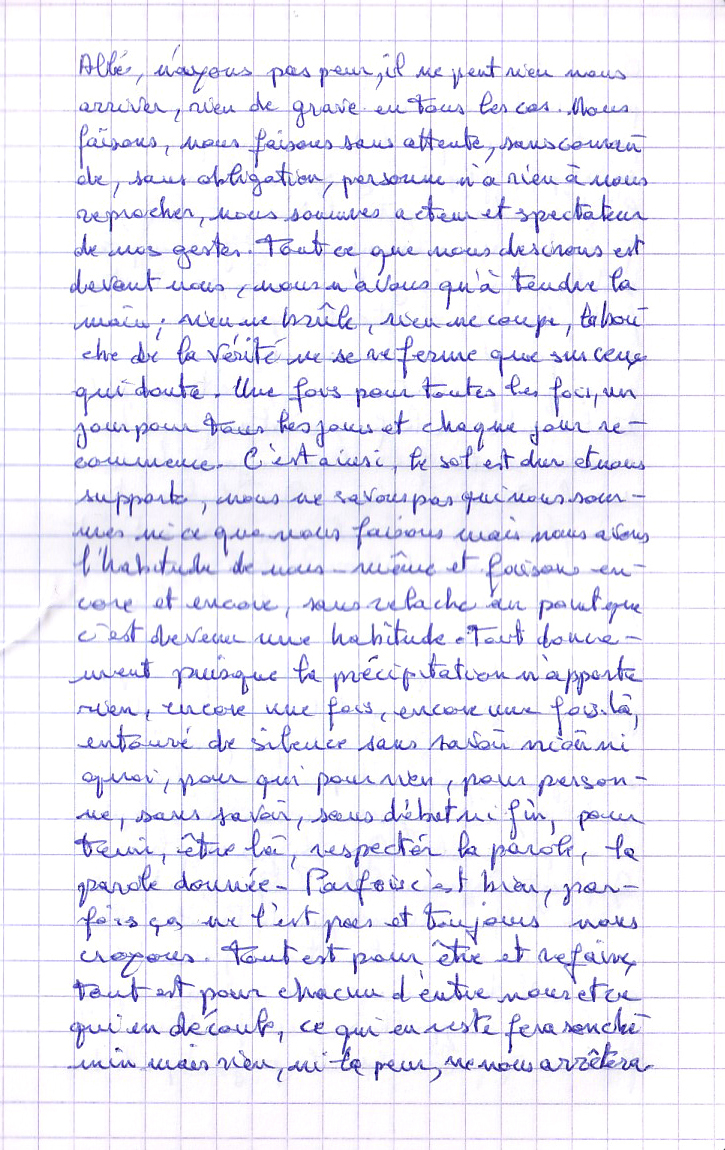 Allés, n'ayons pas peur, il ne peut rien nous
arriver, rien de grave en tous les cas. Nous
faisons, nous faisons sans attente, sans comman
de, sans obligation, personne n'a rien à nous
reprocher, nous sommes acteur et spectateur
de nos gestes. Tout ce que nous desirons est
devant nous, nous n'avons qu'à tendre la
main ; rien ne brûle, rien ne coupe, la bou
che de la vérité ne se referme que sur ceux
qui doute. Une fois pour toutes les fois, un
jour pour tous les jours et chaque jour re-
commence. C'est ainsi, le sol est dur et nous
supporte, nous ne savons pas qui nous som-
mes ni ce que nous faisons mais nous avons
l'habitude de nous-même et faisons en-
core et encore, sans relache au point que
c'est devenu une habitude. Tout douce-
ment puisque la précipitation n'apporte
rien, encore une fois, encore une fois. là,
entouré de silence sans savoir ni où ni
quoi, pour qui pour rien, pour person-
ne, sans savoir, sans début ni fin, pour
tenir, être là, respecter la parole, la
parole donnée - Parfois c'est bien, par-
fois ça ne l'est pas et toujours nous
croyons. Tout est pour être et refaire,
tout est pour chacun d'entre nous et ce
qui en découle, ce qui en reste fera son che
min mais rien, ni la peur, ne nous arrêtera